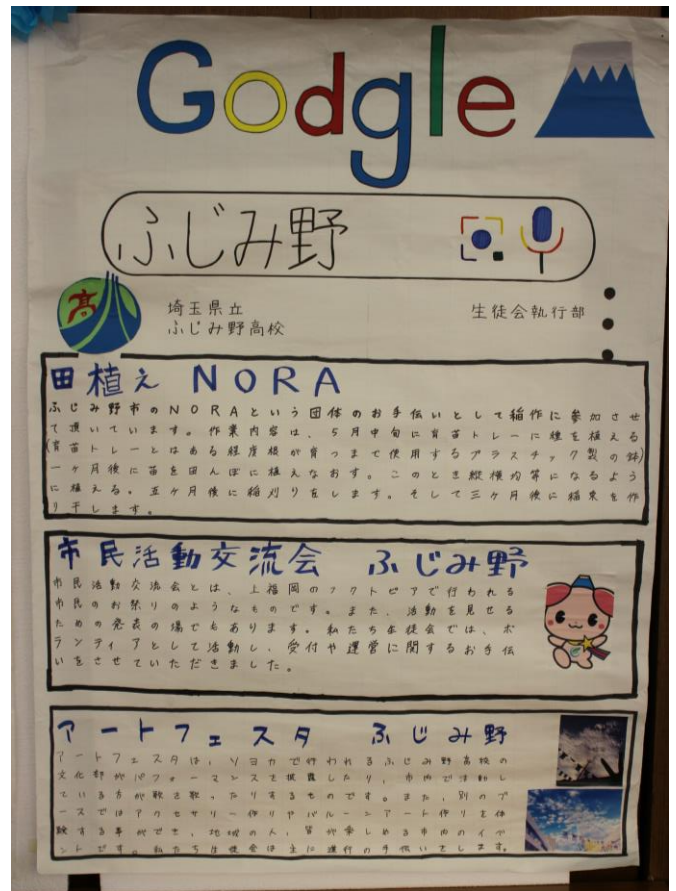 Godgle
ふじみ野
高
埼玉県立
ふじみ野高校
生徒会執行部
田植え NORA
ふじみ野市のNORAという団体のお手伝いとして稲作に参加させ
て頂いています。作業内容は、5月中旬に育苗トレーに種を植える
(育苗トレーとはある程度根が育つまで使用するプラスチック製の鉢)
一ヶ月後に苗を田んぼに植えなおす。このとき縦横均等になるよう
に植える。五ヶ月後に稲刈りをします。そして三ヶ月後に稲束を作
り干します。
市民活動交流会 ふじみ野
市民活動交流会とは、上福岡のフクトピアで行われる
市民のお祭りのようなものです。また、活動を見せる
ための発表の場でもあります。私たち生徒会では、ボ
ランティアとして活動し、受付や運営に関するお手伝
いをさせていただきました。
アートフェスタ ふじみ野
アートフェスタは、ソヨカで行われるふじみ野高校の
文化部がパフォーマンスを披露したり、市内で活動し
ている方が歌を歌ったりするものです。また、別のブ
ースではアクセサリー作りやバルーンアート作りを体
験する事ができ、地域の人、皆が楽しめる市内のイベ
ントです。私たち生徒会は主に運行の手伝いをします。